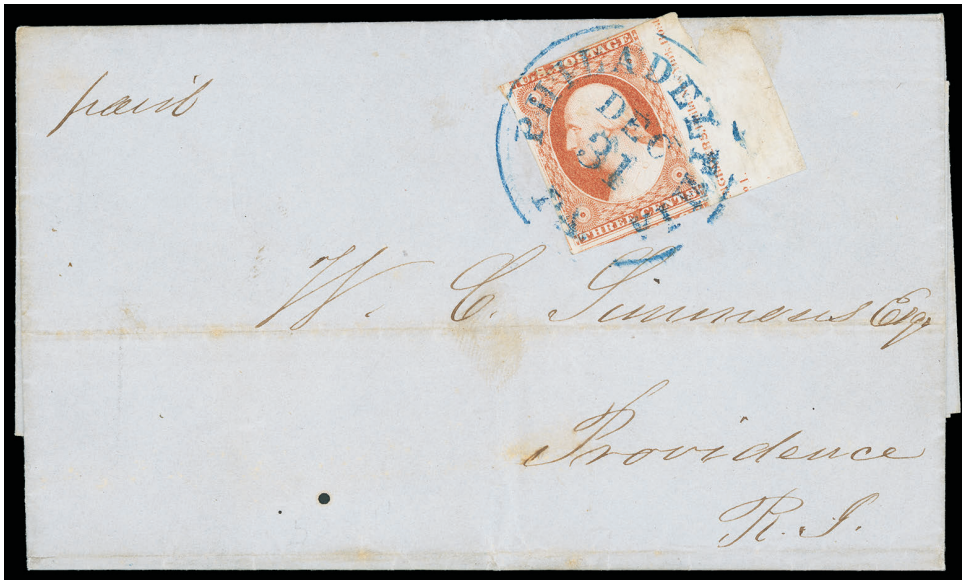 paid
U.S. POSTAGE
THREE CENTS
PHILADELPHIA
DEC
31
W. C. Simmons Esq
Providence
R. I.